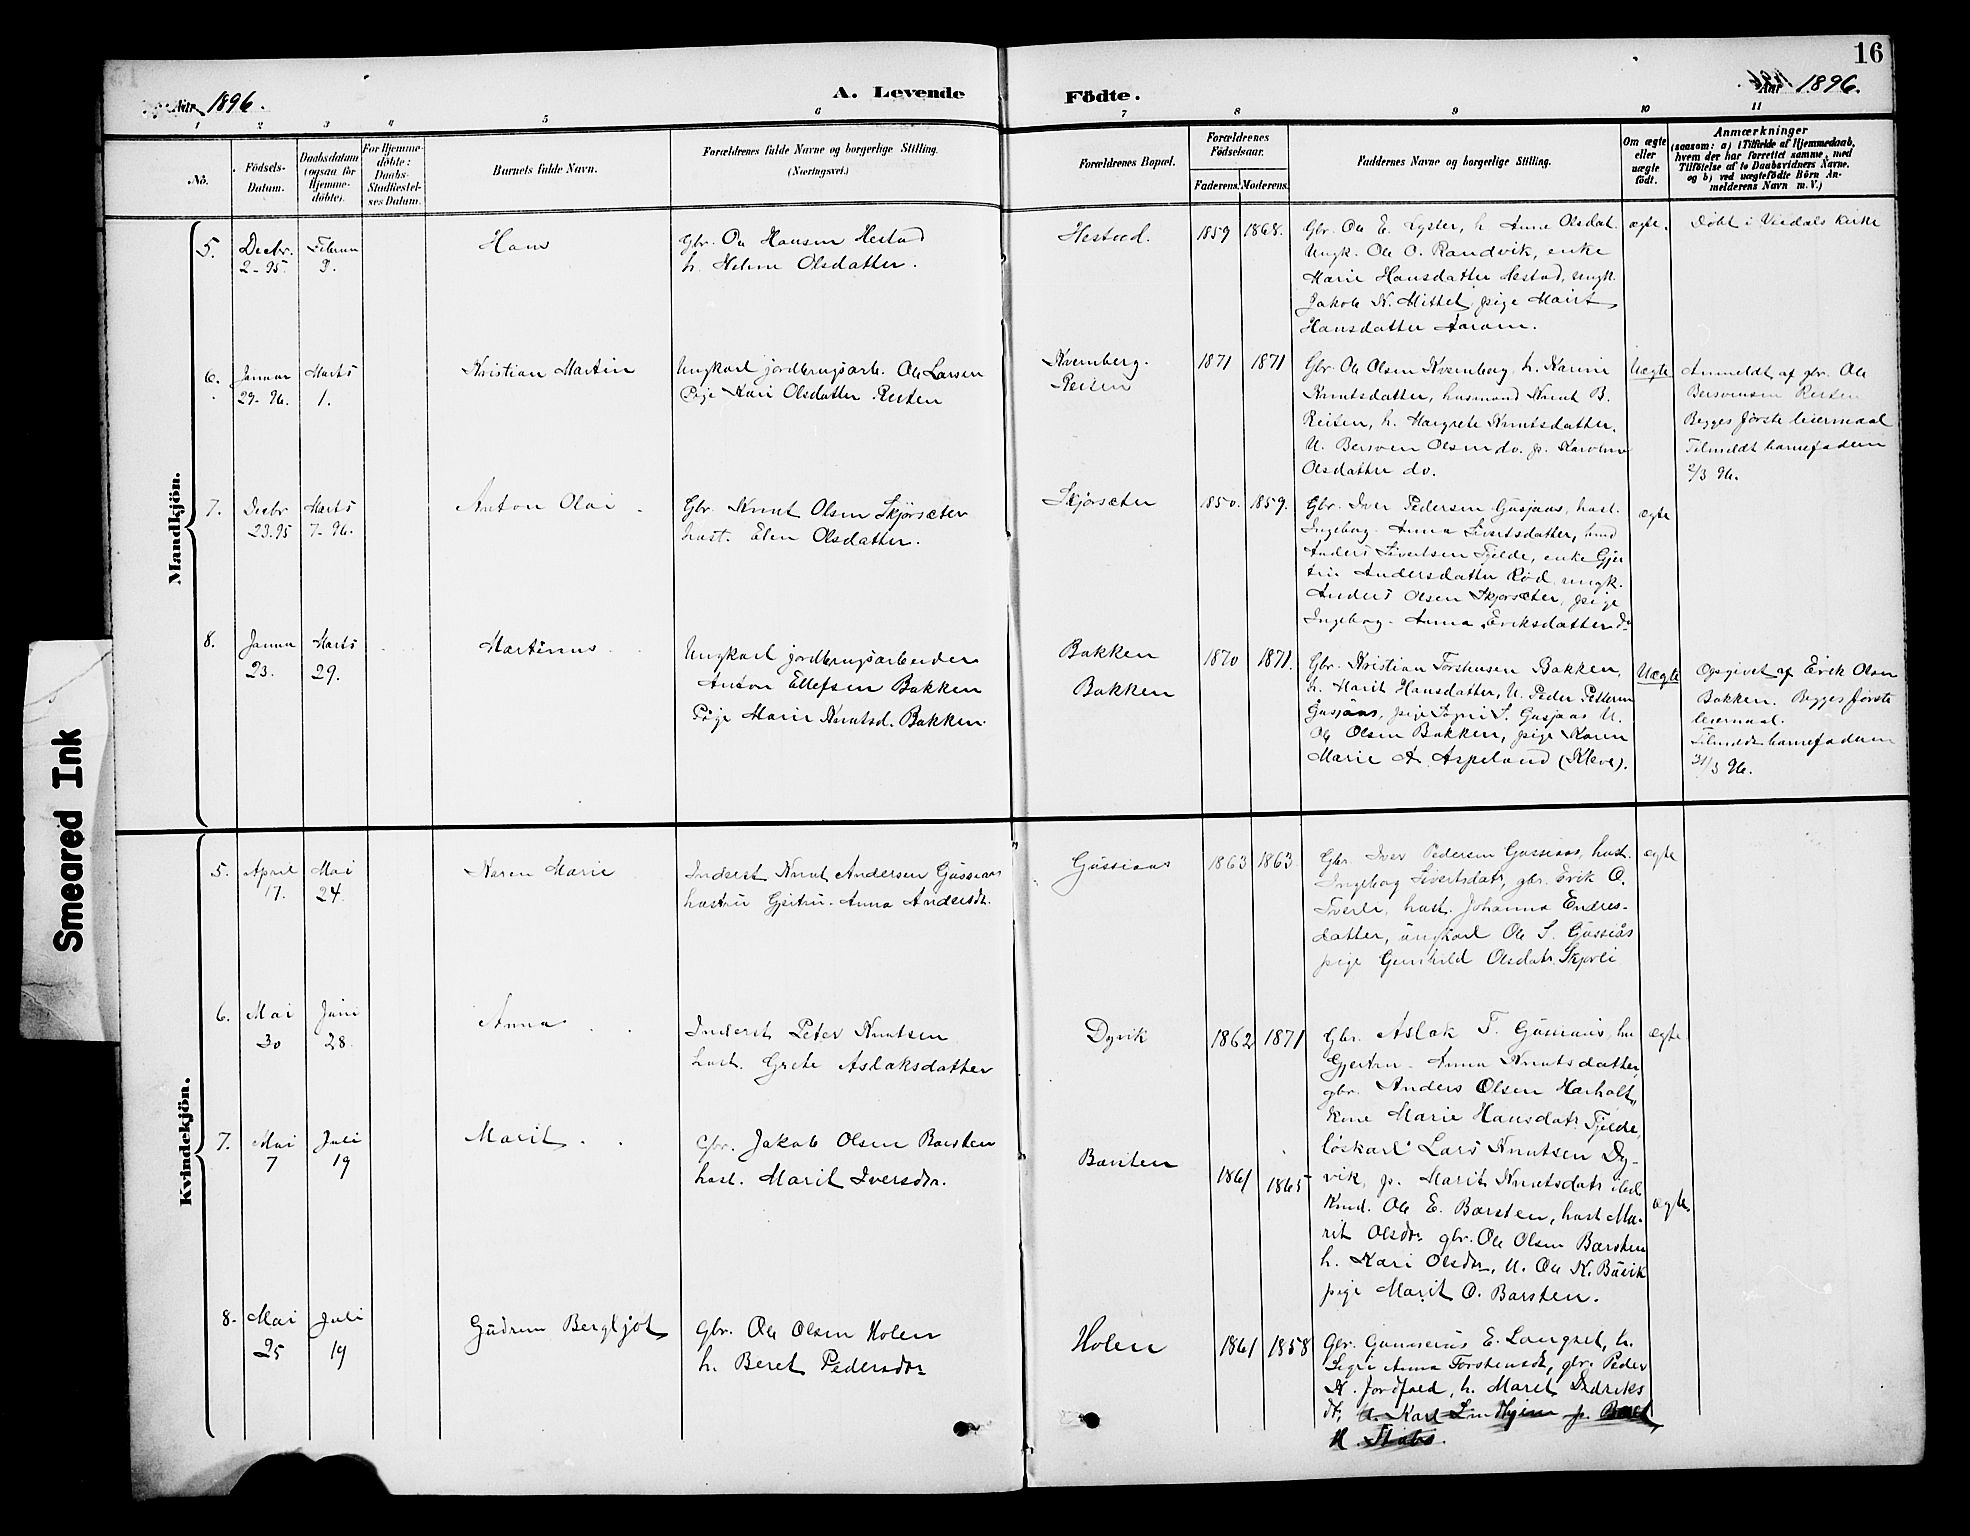 16
Aar 1896.
A. Levende
Födte.
Aar 1896.
1 2 3 4 5 6 7 8 9 10 11
No.
Födsels-
Datum.
Daabsdatum
(ogsaa for
Hjemme-
döbte).
For Hjemme-
döbte:
Daabs-
Stadfæstel-
ses Datum.
Barnets fulde Navn.
Forældrenes fulde Navne og borgerlige Stilling.
(Næringsvei.)
Forældrenes Bopæl.
Forældrenes
Födselsaar.
Faderens. Moderens.
Faddernes Navne og borgerlige Stilling.
Om ægte
eller
uægte
födt.
Anmærkninger
(saasom: a) i Tilfælde af Hjemmedaab,
hvem der har forrettet samme, med
Tilföielse af to Daabsvidners Navne.
og b) ved uægtefödte Börn An-
melderens Navn m. V.)
Mandkjön.
5.
Decbr.
2-95.
Februar
9.
Hans
Gbr. Ole Hansen Hestad
h. Helene Olsdatter.
Hestad.
1859 1868.
Gbr. Ole E. Lyster, h. Anne Olsdat.
Ungk. Ole O. Randvik, enke
Marie Hansdatter Hestad, ungk.
Jakob N. Mittet, pige Marit
Hansdatter Aaram.
ægte.
Døbt i Veedals kirke
6.
Januar
29-96.
Marts
1.
Kristian Martin
Ungkarl jordbrugsarb. Ole Larsen
Pige Kari Olsdatter Reiten
Kvernberg.
Reiten
1871 1871
Gbr. Ole Olsen Kvernberg, h. Karine
Knutsdatter, husmand Knut B.
Reiten, h. Margrete Knutsdatter,
U. Bersven Olsen do. p. Karoline
Olsdatter do.
Uægte
Anmeldt af gbr. Ole
Bersvensen Reiten
Begges første leiermaal
Tilmeldt barnefaderen
2/3 96.
7.
Decbr
23.95
Marts
7-96.
Anton Olai
Gbr. Knut Olsen Skjørsæter
hust. Elen Olsdatter.
Skjørsæter
1850. 1859.
Gbr. Iver Pedersen Gusjaas, hust.
Ingeborg-Anna Sivertsdatter,
Anders Sivertsen Fjelde, enke Gjer
trn Andersdatter Rød, ungk.
Anders Olsen Skjørsæter, pige
Ingeborg-Anna Eriksdatter do
ægte
8.
Januar
23.
Marts
29.
Martinus
Ungkarl jordbrugsarbeider
Anton Ellefsen Bakken
Pige Marie Knutsd. Bakken.
Bakken
Bakken
1870 1871.
Gbr. Kristian Torstensen Bakken,
h. Marit Hansdatter, U. Peder Pettersen
Gusjaas, pige Sigrie S. Gusjaas U.
Ole Olsen Bakken, pige Karen
Marie A. Aspelund (Kleve).
Uægte
Opgivet af Erik Olsen
Bakken. Begges første
leiermaal.
Tilmeldt barnefaderen
31/3 96.
Kvindekjön.
5.
April
17.
Mai
24
Karen Marie
Inderst Knut Andersen Gussiaas
hustru Gjertru-Anna Andersdr.
Gussiaas
1863 1863
Gbr. Iver Pedersen Gussiaas, hust.
Ingeborg Sivertsdatr, gbr. Erik O.
Tverli, hust. Johanna Endres-
datter, ungkarl Ole S. Gussiås
pige Gunhild Olsdatr. Skjorli
ægte
6.
Mai
30
Juni
28.
Anna
Inderst Peter Knutsen
hust. Grete Aslaksdatter
Dyvik
1862 1871
Gbr. Aslak T. Gussiaas, hu
Gjertru-Anna Knutsdatter,
gbr. Anders Olsen Harholt,
Kone Marie Hansdatr. Fjelde,
løskarl Lars Knutsen Dy-
vik, p. Marit Knutsdatr ibd.
ægte
7.
Mai
7
Juli
19
Marit
Gbr. Jakob Olsen Barsten
hust. Marit Iversdr.
Barsten
1861 1865
Kmd. Ole E. Barsten, hust Ma-
rit Olsdr. gbr. Ole Olsen Barsten
h. Kari Olsdr., U. Ole K. Bævik
pige Marit O. Barsten.
ægte.
8.
Mai
25
Juli
19
Gudrun Bergljot
Gbr. Ole Olsen Holen
h. Beret Pedersdr
Holen
1861 1858
Gbr. Gunnerius E. Langset, h.
Sigri Anna Torstensdt, gbr. Peder
N. Jordfald, h. Marit Didriks
dt,
Smeared Ink